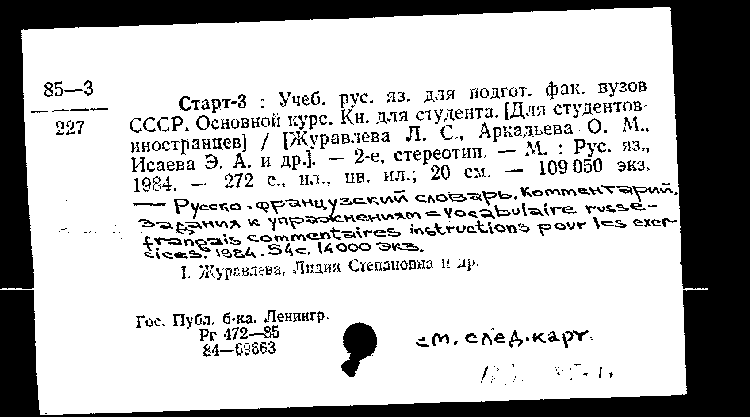 85—3
227
Старт-3 : Учеб. рус. яз. для подгот. фак. вузов
СССР. Основной курс. Кн. для студента. [Для студентов-
иностранцев] / [Журавлева Л. С., Аркадьева О. М.,
Исаева Э. А. и др.]. — 2-е, стереотип. — М. : Рус. яз.,
1984. — 272 с., ил., цв. ил.; 20 см. — 109 050 экз.
— Русско-французский словарь. Комментарий.
Задания к упражнениям = Vocabulaire russe-
français commentaires instructions pour les exer-
cices. 1984. 54с. 14000 экз.
I. Журавлева, Лидия Степановна и др.
Гос. Публ. б-ка. Ленингр.
Рг 472—85
84—69663
см. след. карт.